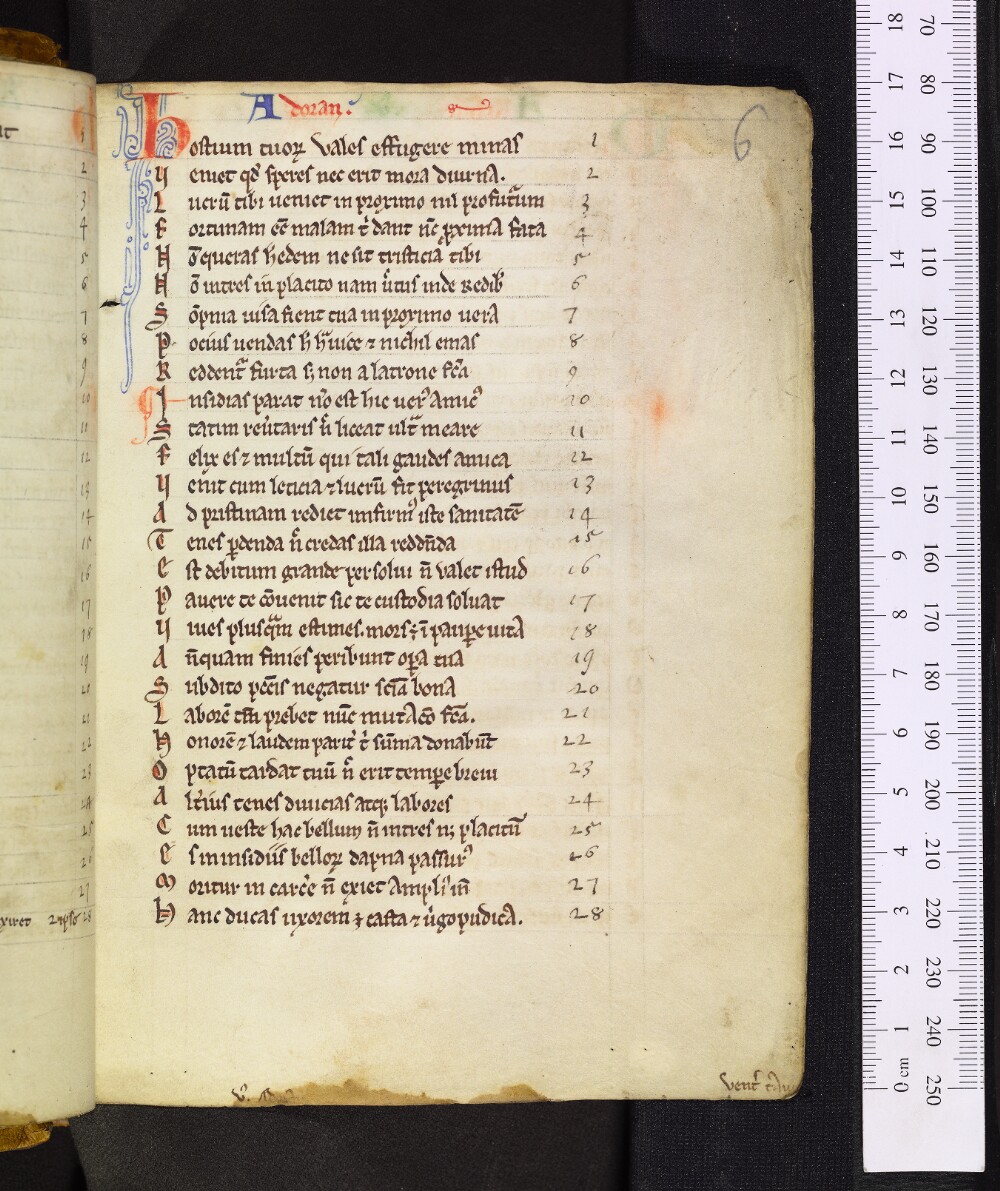 Adoran.
6
Hostium tuoꝝ vales effugere minas 1
Veniet qd̕ speres nec erit mora diurna. 2
Lucrū tibi veniet in proximo nil profuturum 3
Fortunam eē malam t̕ dant nc̄ proxima fata 4
Nō queras hedem ne sit tristicia tibi 5
Nō intres in placito nam v̕tus inde redib̕ 6
Sōpnia visa fient tua in proximo vera 7
Pocius vendas h h̕vice ⁊ nichil emas 8
Reddent᷑ furta sꝫ non a latrone fcā 9
Insidias parat nō est hic ver᷒ amic᷒ 10
Statim rev̕taris n̄ liceat ult᷑ meare 11
Felix es ⁊ multū qui tali gaudes amica 12
Veniet cum leticia ⁊ lucrū sit peregrinus 13
Ad pristinam rediet infirm᷒ iste sanitatē 14
Tenes ꝑdenda n̄ credas illa reddn̄da 15
Est debitum grande persolvi n̄ valet istud 16
Pavere te cōvenit sic te custodia solvat 17
Vives plusq̄m estimes. mors ē ī paupe vita 18
An̄quam finies peribunt oꝑa tua 19
Subdito pccīs negatur sciā bona 20
Laborē tn̄ prebet nūc mutacō fcā. 21
Honorē ⁊ laudem parit᷑ t̕ sūma donabūt 22
Optatū tardat tuū n̄ erit tempe brevi 23
Alt̕ius tenes divicias atqꝫ labores 24
Cum veste hac bellum n̄ intres nꝫ placitū 25
Es in insidiis belloꝝ dapna passur᷒ 26
Moritur in carc̕e n̄ exiet ampli᷒ in̄ 27
Hanc ducas uxorem ē casta ⁊ v̕go pudica. 28